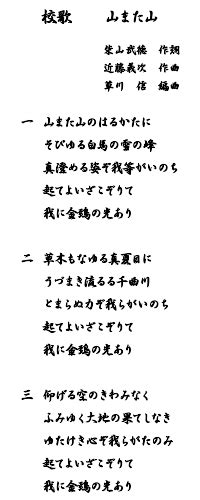 校歌 山また山
柴山武徳 作詞
近藤義次 作曲
草川 信 編曲
一 山また山のはるかたに
そびゆる白馬の雪の峰
真澄める姿ぞ我等がいのち
起てよいざこぞりて
我に金鵄の光あり
二 草木もなゆる真夏日に
うづまき流るる千曲川
とまらぬ力ぞ我らがいのち
起てよいざこぞりて
我に金鵄の光あり
三 仰げる空のきわみなく
ふみゆく大地の果てしなき
ゆたけき心ぞ我らがたのみ
起てよいざこぞりて
我に金鵄の光あり